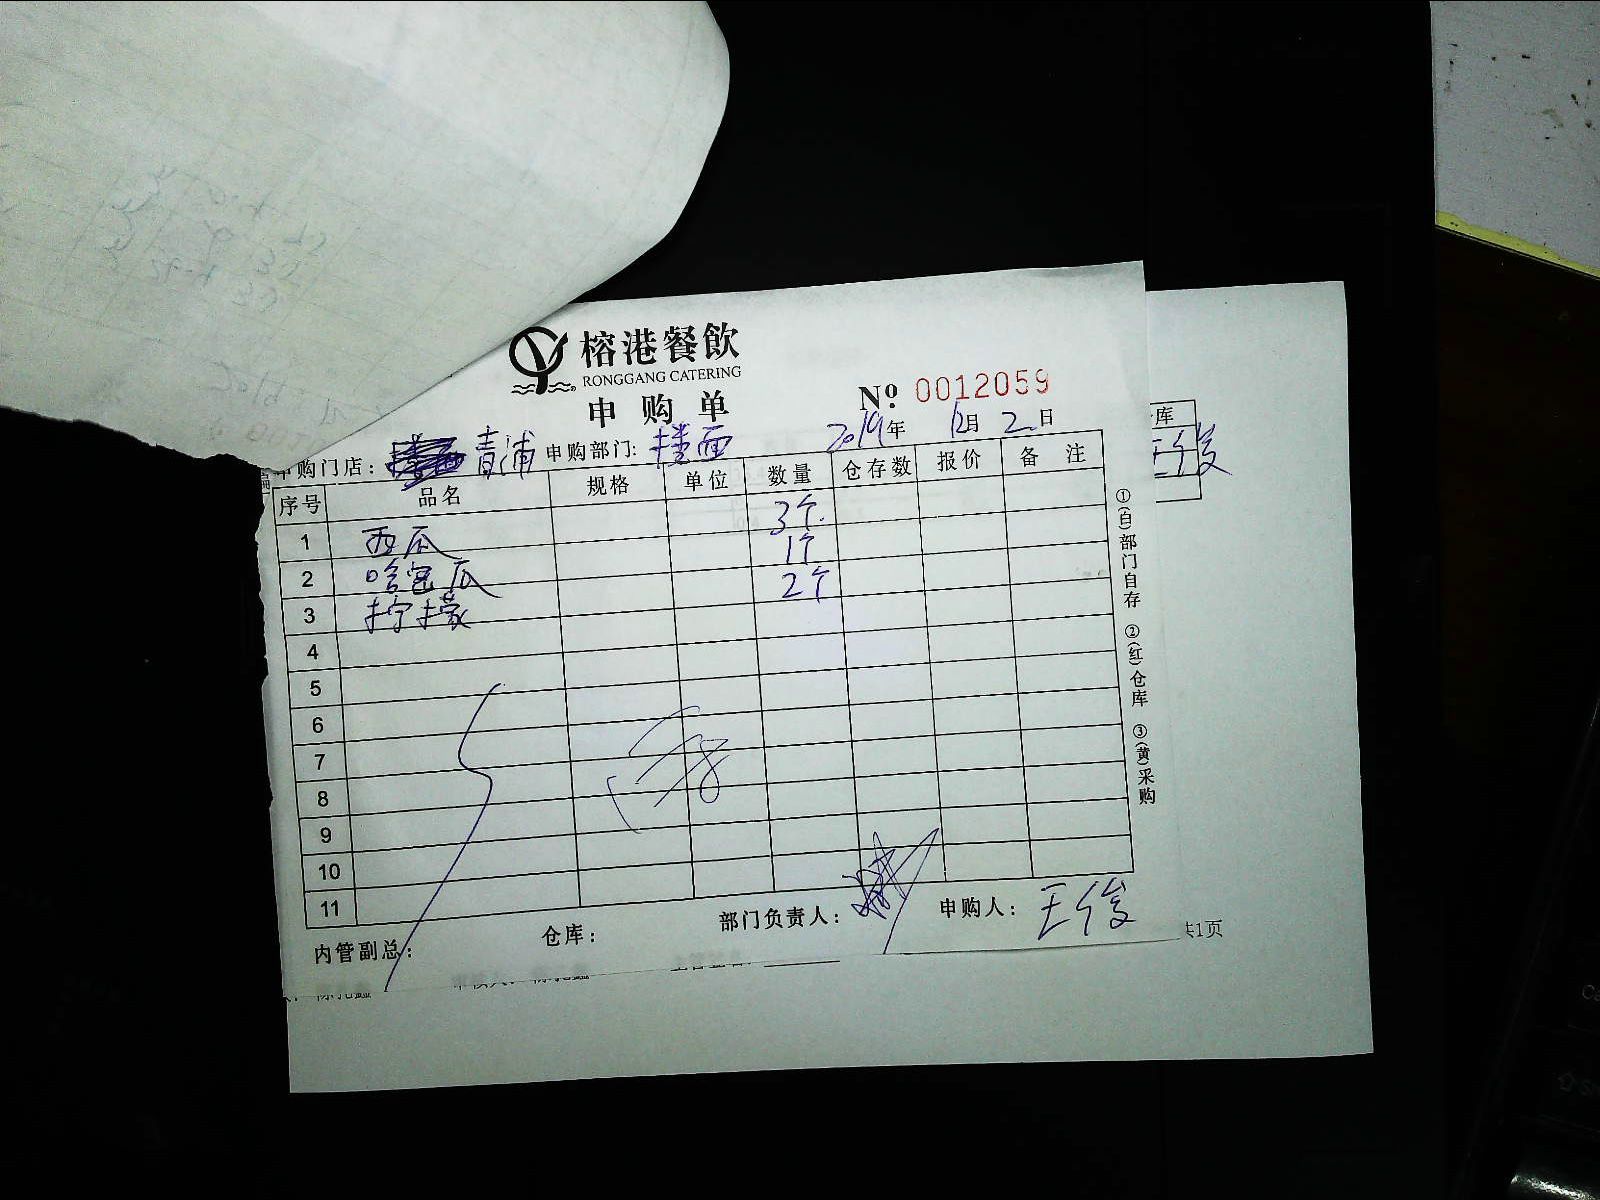 榕港餐飲
RONGGANG CATERING
申购单
№ 0012059
2019年 12月 2日
申购门店: 青浦 申购部门: 楼面
序号 品名 规格 单位 数量 仓存数 报价 备注
1 西瓜 3个
2 哈密瓜 1个
3 拧檬 2个
4
5
6
7
8
9
10
11
内管副总: 仓库: 部门负责人: 申购人: 王俊
①(白)部门自存 ②(红)仓库 ③(黄)采购
库
王俊
共1页